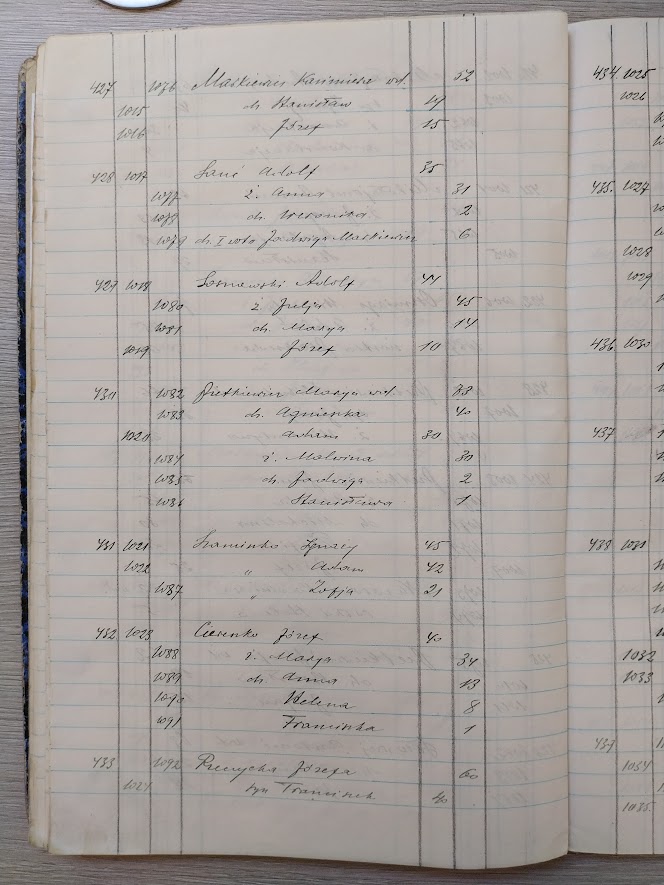 427 1076 Maskiewicz Kazimiera wd. 52
1015 ch. Stanisław 17
1016 Józef 15
428 1017 Adolf 35
1077 ż. Anna 31
1078 ch. Weronika 2
1079 ch. I voto Jadwiga Maskiewicz 6
429 1018 Sosnowski Adolf 44
1080 ż. Julja 45
1081 ch. Marya 14
1019 Józef 10
430 1082 Pietkiewicz Marya wd. 73
1083 ch. Agnieszka 40
1020 Adam 30
1084 ż. Malwina 30
1085 ch. Jadwiga 2
1086 Stanisława 1
431 1021 Ignacy 45
1022 " Adam 42
1087 " Zofja 21
432 1023 Józef 40
1088 ż. Marya 34
1089 ch. Anna 13
1090 Helena 8
1091 Franciszka 1
433 1092 Józefa 60
1024 syn Franciszek 40
434 1025
1026
435. 1027
1028
1029
436 1030
437
438 1031
1032
1033
1034
1035.